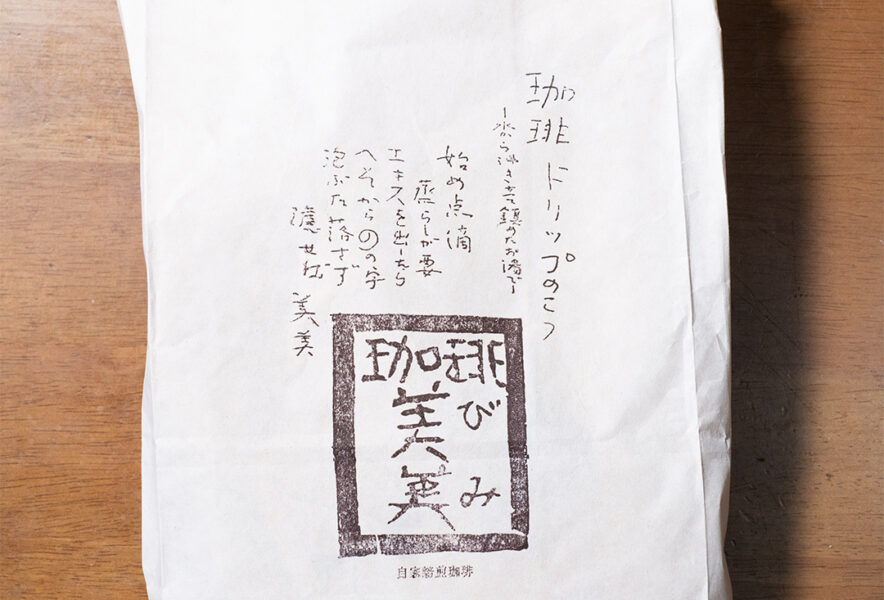 珈琲ドリップのこつ
ー沸から沸きたて鎮めたお湯でー
始め点滴
蒸らしが要
エキスを出したら
へそからのの字
泡ぶた落さず
濾せば 美美
珈琲
び
み
美美
自家焙煎珈琲